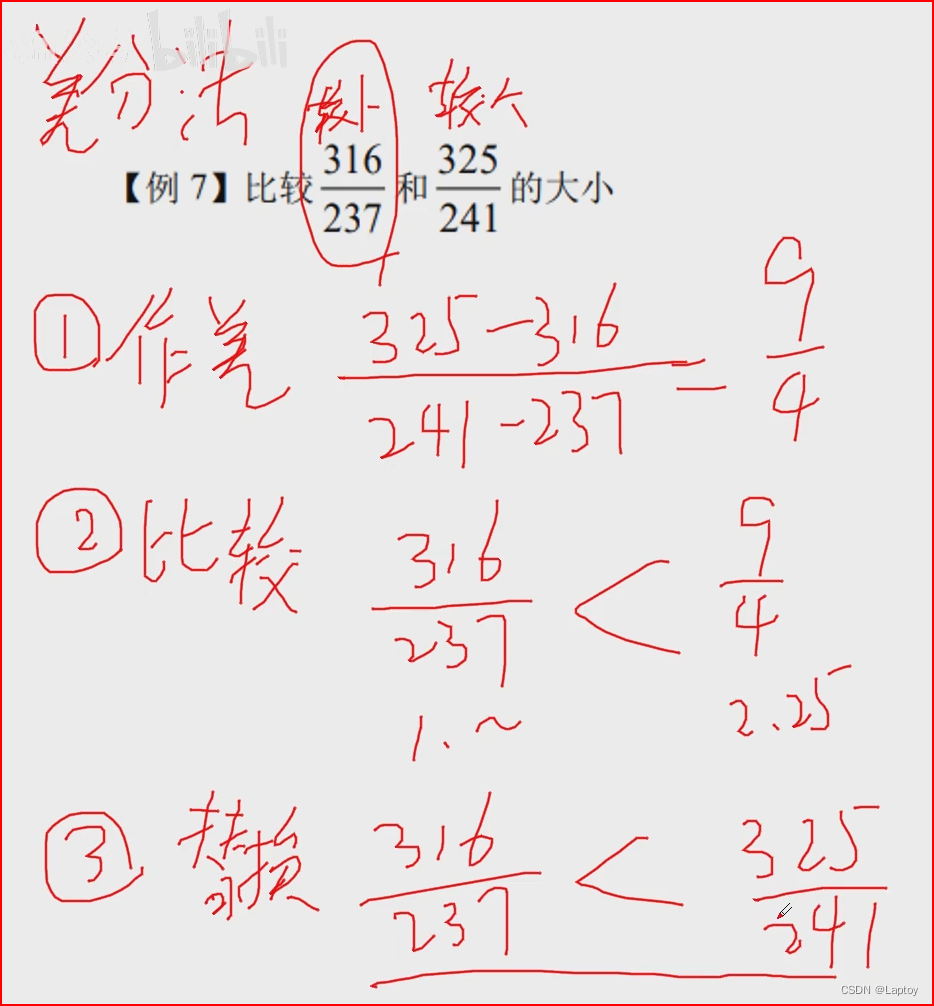 bilibili
差分法 较小 较大
【例 7】比较 316/237 和 325/241 的大小
① 作差 (325-316)/(241-237) = 9/4
② 比较 316/237 < 9/4
1.~ 2.25
③ 替换 316/237 < 325/241
CSDN @Laptoy